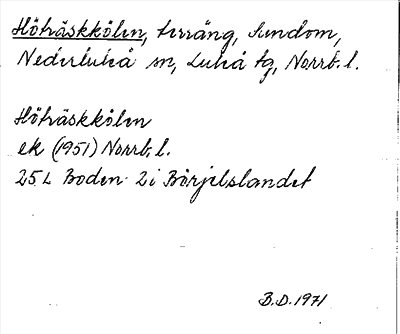 Höträskkölen, terräng, Sundom,
Nederluleå sn, Luleå tg, Norrb. l.
Höträskkölen
ek (1951) Norrb. l.
25 L Boden 2i Börjelslandet
B.D. 1971